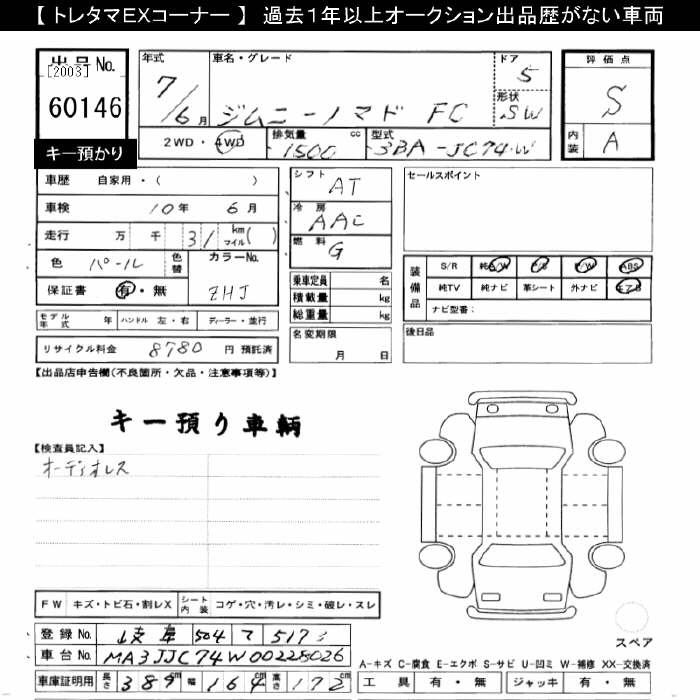 【 トレタマEXコーナー 】 過去1年以上オークション出品歴がない車両
出品 No.
[2003]
60146
キー預かり
年式 車名・グレード ドア
7/6月 ジムニーノマド FC 5
形状 SW
2WD・4WD 排気量 1500 cc 型式 3BA-JC74W
評価点
S
内装 A
車歴 自家用・( )
車検 10年 6月
走行 万 千 31 km マイル( )
色 パール 色替 カラーNo.
ZHJ
保証書 有・無
シフト AT
冷房 AAC
燃料 G
乗車定員 名
積載量 kg
総重量 kg
セールスポイント
装備品 S/R 純A/W P/S P/W ABS
純TV 純ナビ 革シート 外ナビ エアB
ナビ型番:
モデル年式 年 ハンドル 左・右 ディーラー・並行
リサイクル料金 8780 円 預託済
名変期限
月 日
後日品
【出品店申告欄(不良箇所・欠品・注意事項等)】
キー預り車輌
【検査員記入】
オーディオレス
FW キズ・トビ石・割レX シート内装 コゲ・穴・汚レ・シミ・破レ・スレ
登録 No. 岐阜 504 て 5173
車台 No. MA3JJC74W00228026
車庫証明用 長さ 389cm 幅 164cm 高さ 172cm
スペア
A-キズ C-腐食 E-エクボ S-サビ U-凹ミ W-補修 XX-交換済
工具 有・無 ジャッキ 有・無